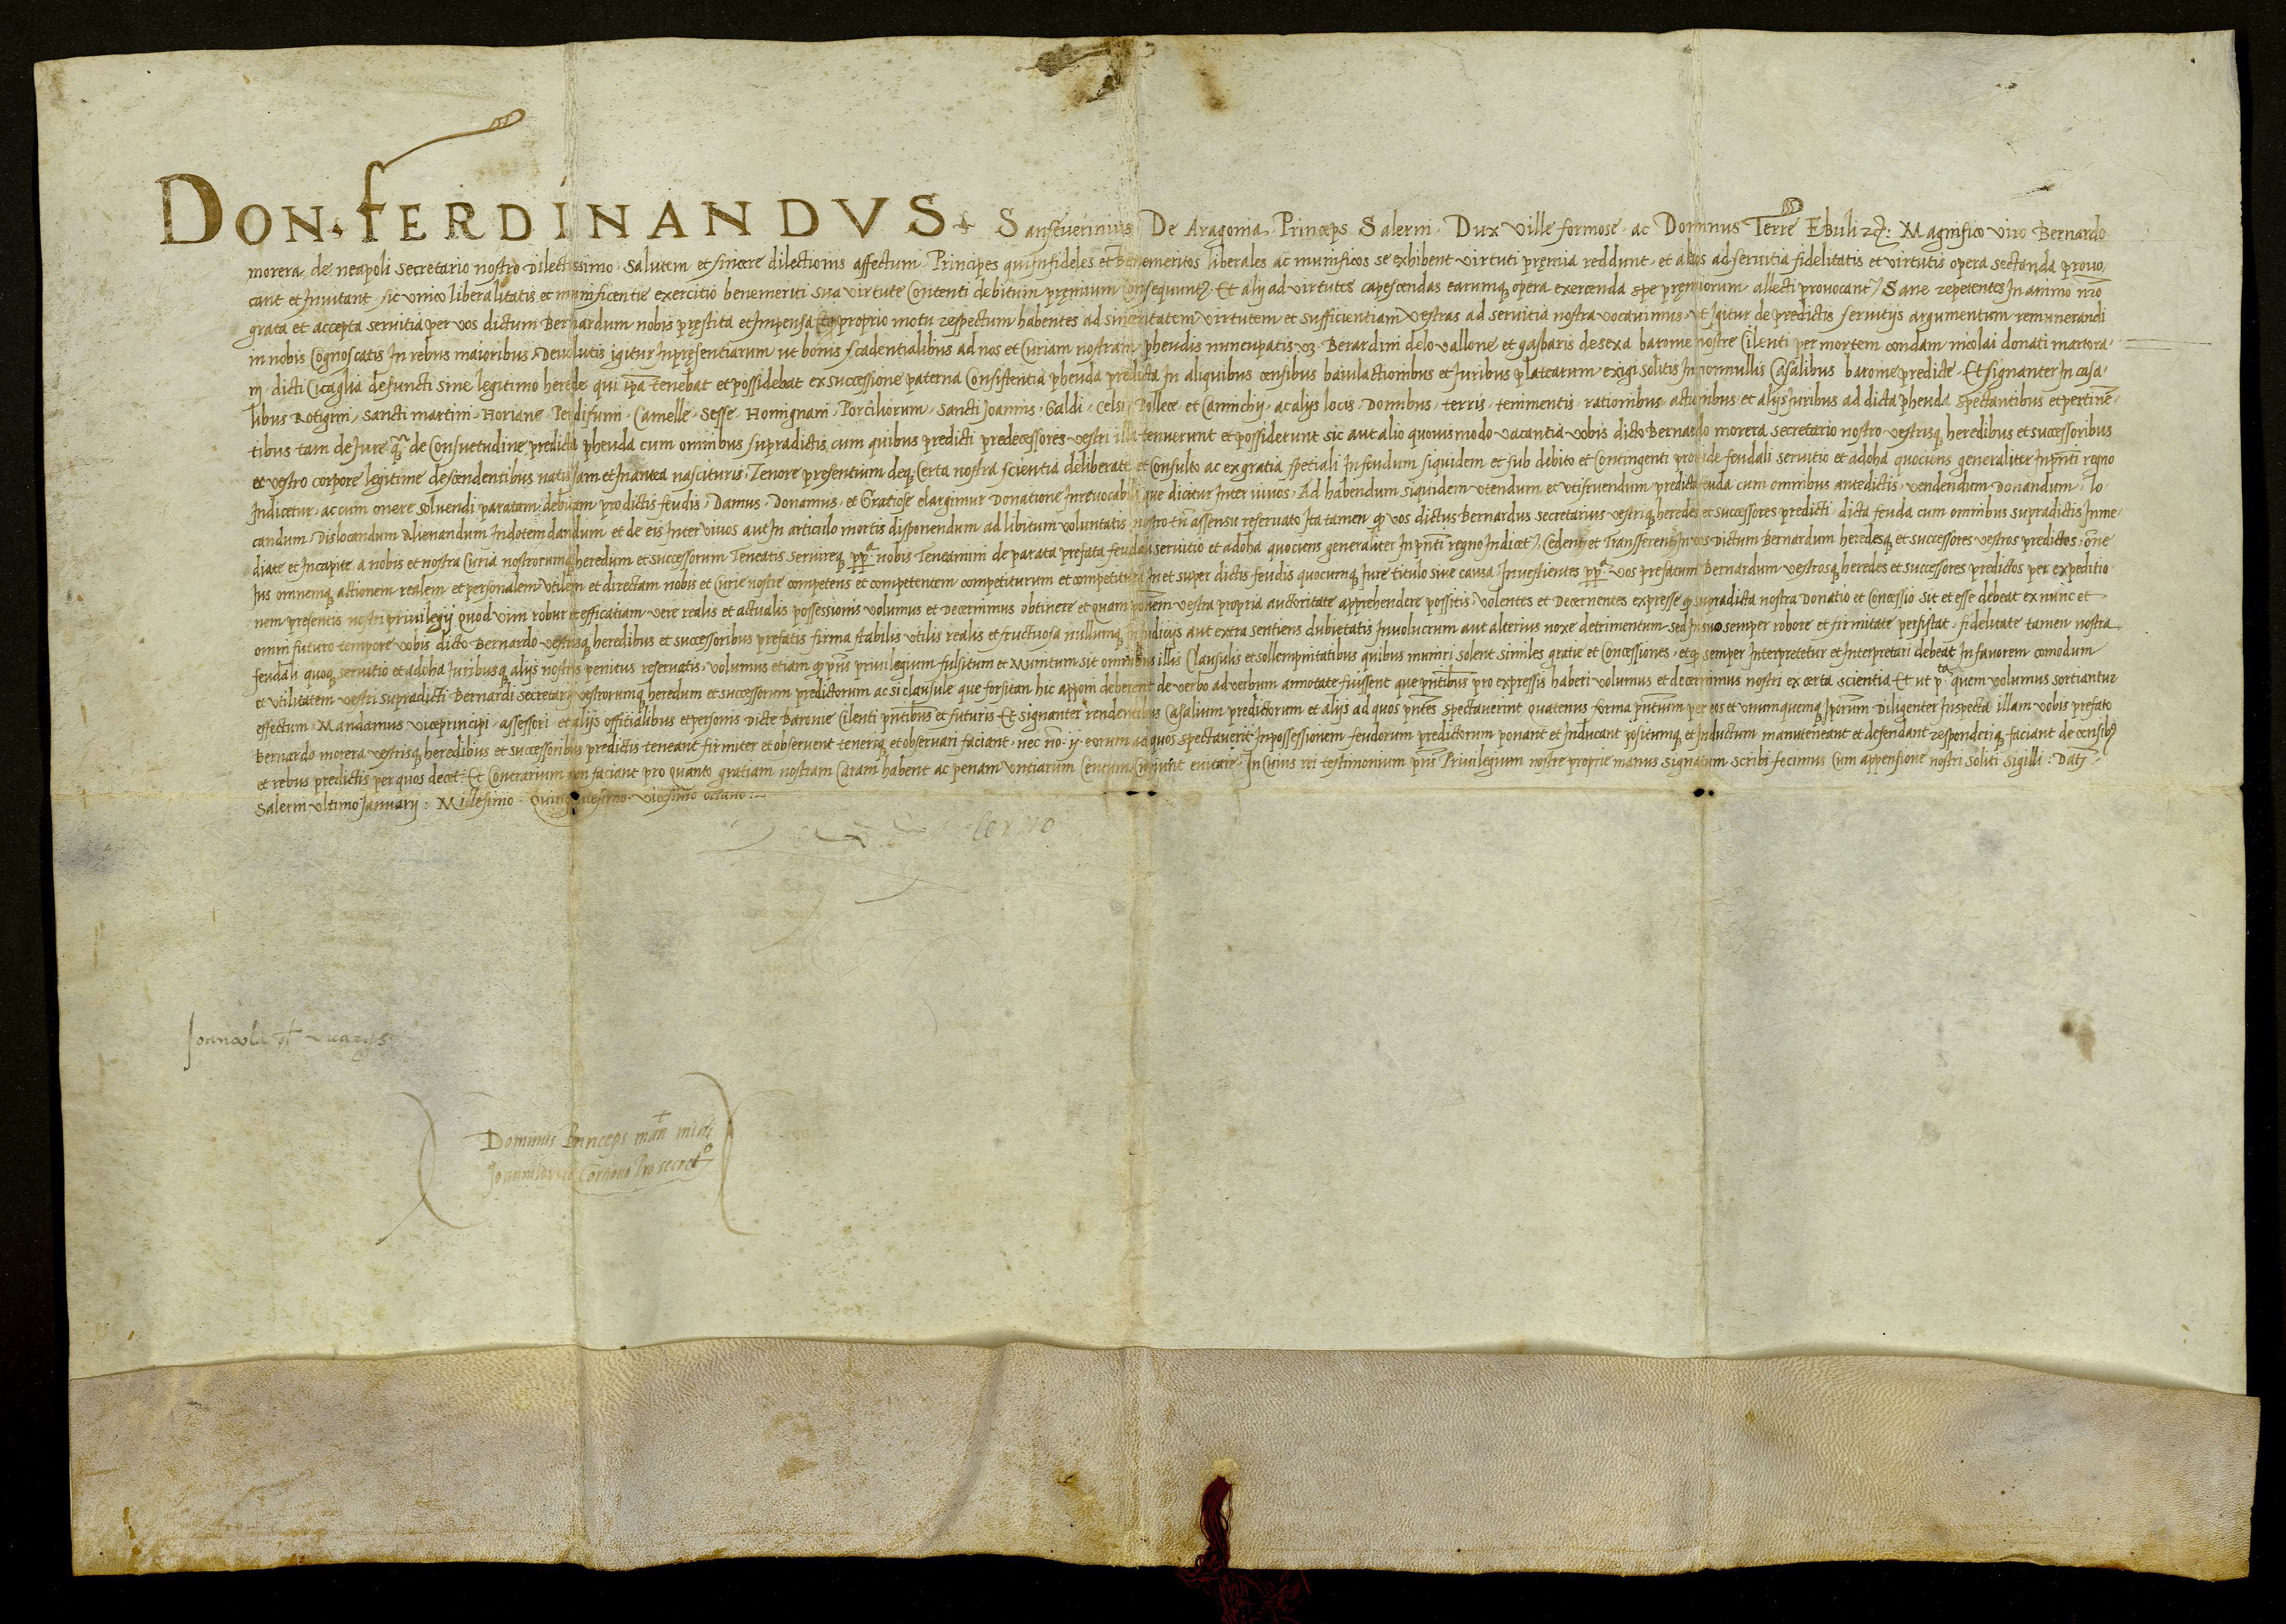 DON FERDINANDVS Sanseverinus De Aragonia Princeps Salerni Dux Ville formose ac Dominus Terre Ebuli Magnifico viro Bernardo
morera de neapoli secretario nostro Dilectissimo salutem et sincere dilectionis affectum Principes qui in fideles et Benemeritos liberales ac munificos se exhibent virtuti pręmia reddunt et alios ad servitia fidelitatis et virtutis opera sectanda provo
cant et Invitant sic unico liberalitatis et munificentie exercitio benemeriti sua virtute Contenti debitum pręmium consequuntꝫ Et alij ad virtutes capescendas earumqꝫ opera exercenda spe pręmiorum allecti provocantꝫ Sane repetentes In animo nr̄o
grata et accepta servitia per vos dictum Bernardum nobis pręstita et Impensa proprio motu respectum habentes ad sinceritatem virtutem et sufficientiam vestras ad servitia nostra vocavimus ut Igitur de predictis servitijs argumentum remunerandi
in nobis Cognoscatis In rebus maioribus Devolutis igitur Inpręsentiarum ut bonis scadentialibus ad nos et Curiam nostram pheudis nuncupatis vꝫ Berardini delo vallone et gasbaris desexa baronie nostre Cilenti per mortem condam nicolai donati martora
ni dicti Cicaglia defuncti sine legitimo herede qui ip̄a tenebat et possidebat ex successione paterna Consistentia pheuda predicta In aliquibus censibus baiulactionibus et Juribus platearum exigi solitis In nonnullis Casalibus baronie predicte Et signanter In casa
libus Rotigni sancti martini Horiane Perdifumi Camelle Sesse Homignani Porciliorum Sancti Joannis Galdi Celsi Pollece et Cannichij ac alijs locis Domibus terris tenimentis rationibus actionibus et alijs Juribus ad dicta pheuda spectantibus et pertinē
tibus tam de Jure q̄ de Consuetudine predicta pheuda cum omnibus supradictis cum quibus predicti predecessores vestri illa tenuerunt et possiderunt sic aut alio quovis modo vacantia vobis dicto Bernardo morera secretario nostro vestrisqꝫ heredibus et successoribus
ex vestro corpore legitime descendentibus natis Jam et In antea nascituris Tenore presentium deqꝫ Certa nostra scientia deliberate et Consulto ac ex gratia spetiali In feudum siquidem et sub debito et Contingenti proinde feudali servitio et adoha quociens generaliter Inpn̄ti regno
Indicetur ac cum onere solvendi paratam debitam pro dictis feudis Damus Donamus et Gratiose elargimur Donatione Inrevocabili que dicitur Inter vivos Ad habendum siquidem utendum et utifruendum predicta feuda cum omnibus antedictis vendendum Donandum lo
candum Dislocandum Alienandum Indotem dandum et de eis Inter vivos aut In articulo mortis disponendum ad libitum voluntatis nostro tn̄ assensu reservato Ita tamen qꝫ vos dictus Bernardus secretarius vestriqꝫ heredes et successores predicti dicta feuda cum omnibus supradictis Inme
diate et Incapite a nobis et nostra Curia nostrorumqꝫ heredum et successorum Teneatis servireqꝫ pp̄ nobis Teneamini de parata prefata feudali servitio et adoha quociens generaliter Inpn̄ti regno Indicetꝫ Cedentes et Transferentes In vos Dictum Bernardum heredesqꝫ et successores vestros predictos om̄e
Jus omnemqꝫ actionem realem et personalem utilem et directam nobis et Curie nostre competens et competentem competiturum et competituram In et super dictis feudis quocumqꝫ Jure titulo sive causa Investientes pp̄ vos prefatum Bernardum vestrosqꝫ heredes et successores predictos per expeditio
nem presentis nostri privilegij Quod vim robur et efficatiam vere realis et actualis possessionis volumus et Decernimus obtinere et quam vestra propria auctoritate apprehendere possitis volentes et Decernentes expresse qꝫ supradicta nostra Donatio et Concessio sit et esse debeat ex nunc et
omni futuro tempore vobis dicto Bernardo vestrisqꝫ heredibus et successoribus prefatis firma stabilis utilis realis et fructuosa nullumqꝫ In Judicijs aut extra sentiens dubietatis Involucrum aut alterius noxe detrimentum sed In suo semper robore et firmitate persistat fidelitate tamen nostra
feudali quoqꝫ servitio et adoha Juribusqꝫ alijs nostris penitus reservatis volumus etiam qꝫ pn̄s privilegium fulsitum et Munitum sit omnibus illis Clausulis et sollempnitatibus quibus muniri solent similes gratie et Concessiones etqꝫ semper Interpretetur et Interpretari debeat In favorem comodum
et utilitatem vestri supradicti Bernardi secretarij vestrorumqꝫ heredum et successorum predictorum ac si clausule que forsitan hic apponi deberent de verbo ad verbum annotate fuissent que pn̄tibus pro expressis haberi volumus et decernimus nostri ex certa scientia Et ut p̄ta quem volumus sortiantur
effectum Mandamus viceprincipi assessori et alijs offitialibus et personis Dicte Baronie Cilenti pn̄tibus et futuris Et signanter rendentibus Casalium predictorum et alijs ad quos pn̄tes spectaverint Quatenus forma pn̄tium per eos et unumquemqꝫ Ip̄orum Diligenter Inspecta illam vobis prefato
Bernardo morera vestrisqꝫ heredibus et successoribus predictis teneant firmiter et observent teneriqꝫ et observari faciant nec nō ij eorum ad quos spectaverit Inpossessionem feudorum predictorum ponant et Inducant positumqꝫ et Inductum manuteneant et defendant responderiqꝫ faciant de censibꝫ
et rebus predictis per quos decet Et Contrarium non faciant pro quanto gratiam nostram Caram habent ac penam untiarum Centum Cupiunt evitare In Cuius rei testimonium pn̄s Privilegium nostre proprie manus signatum scribi fecimus Cum appensione nostri soliti Sigilli Datꝫ
Salerni ultimo Januarij Millesimo Quingentesimo vicesimo octavo
Dominus Princeps man̄t mihi
Prosecret°